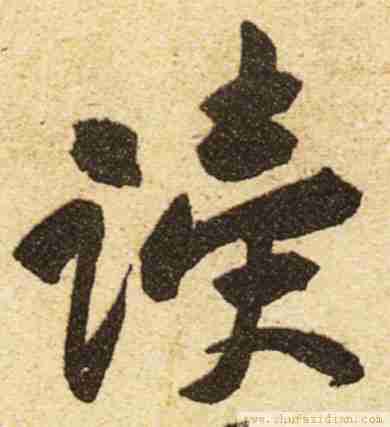 读
www.shufazidian.com